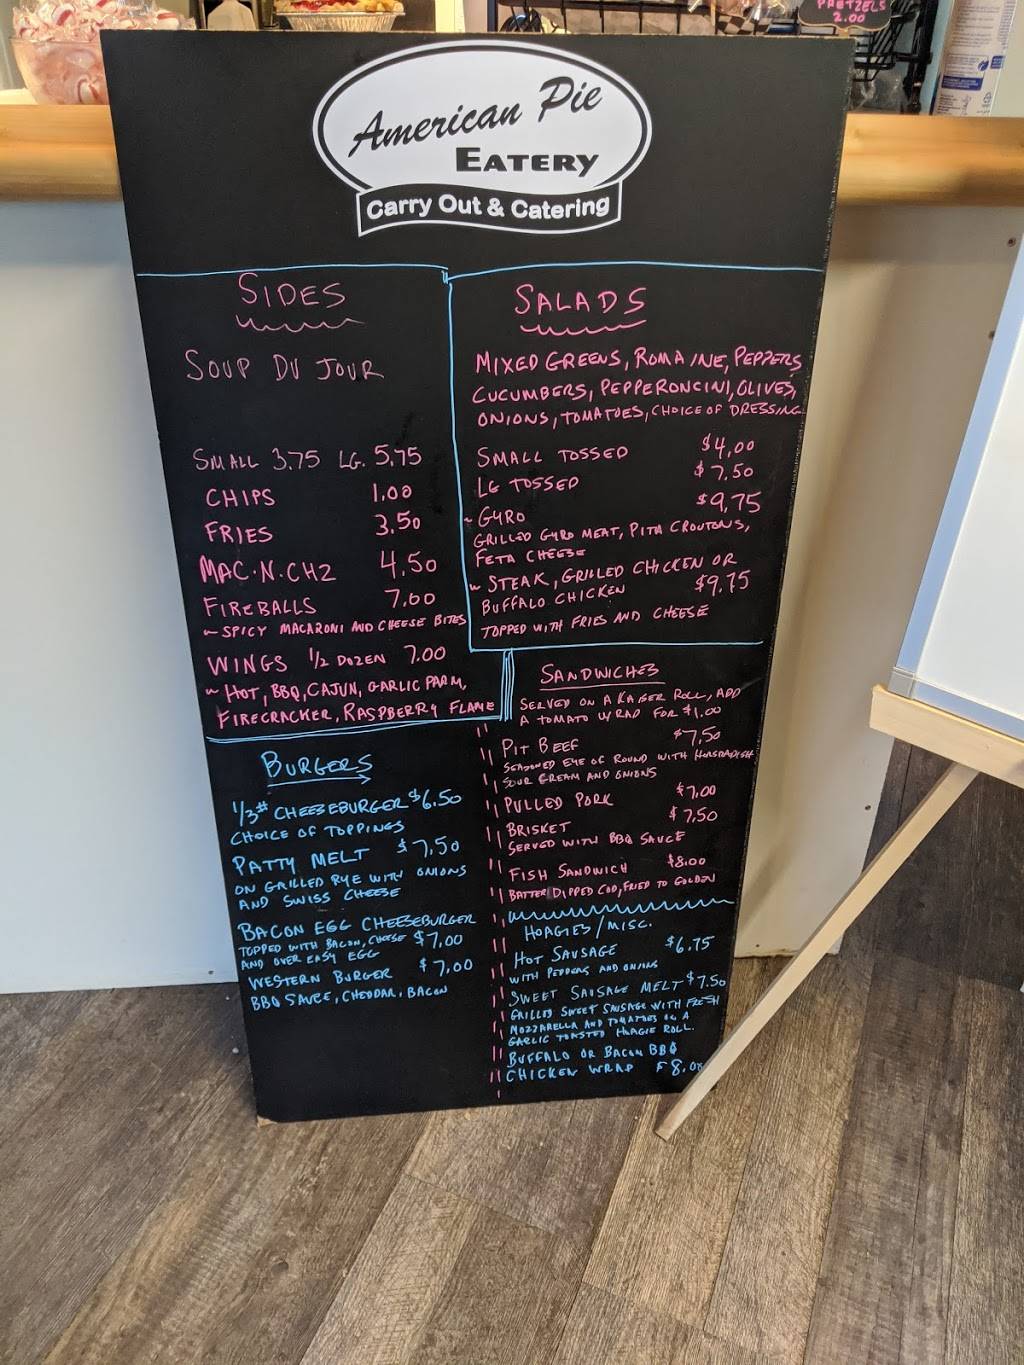 PRETZELS
2.00
American Pie
EATERY
Carry Out & Catering
SIDES
SOUP DU JOUR
SMALL 3.75 LG. 5.75
CHIPS 1.00
FRIES 3.50
MAC.N.CHZ 4.50
FIREBALLS 7.00
~ SPICY MACARONI AND CHEESE BITES
WINGS 1/2 DOZEN 7.00
~ HOT, BBQ, CAJUN, GARLIC PARM,
FIRECRACKER, RASPBERRY FLAME
SALADS
MIXED GREENS, ROMAINE, PEPPERS,
CUCUMBERS, PEPPERONCINI, OLIVES,
ONIONS, TOMATOES, CHOICE OF DRESSING
SMALL TOSSED $4.00
LG TOSSED $7.50
~ GYRO $9.75
GRILLED GYRO MEAT, PITA CROUTONS,
FETA CHEESE
~ STEAK, GRILLED CHICKEN OR
BUFFALO CHICKEN $9.75
TOPPED WITH FRIES AND CHEESE
BURGERS
1/3# CHEESEBURGER $6.50
CHOICE OF TOPPINGS
PATTY MELT $7.50
ON GRILLED RYE WITH ONIONS
AND SWISS CHEESE
BACON EGG CHEESEBURGER
TOPPED WITH BACON, CHEESE $7.00
AND OVER EASY EGG
WESTERN BURGER $7.00
BBQ SAUCE, CHEDDAR, BACON
SANDWICHES
SERVED ON A KAISER ROLL, ADD
A TOMATO WRAP FOR $1.00
PIT BEEF $7.50
SEASONED EYE OF ROUND WITH HORSRADISH
SOUR CREAM AND ONIONS
PULLED PORK $7.00
BRISKET $7.50
SERVED WITH BBQ SAUCE
FISH SANDWICH $8.00
BATTER DIPPED COD, FRIED TO GOLDEN
HOAGIES/MISC.
HOT SAUSAGE $6.75
WITH PEPPERS AND ONIONS
SWEET SAUSAGE MELT $7.50
GRILLED SWEET SAUSAGE WITH FRESH
MOZZARELLA AND TOMATOES ON A
GARLIC TOASTED HOAGIE ROLL.
BUFFALO OR BACON BBQ
CHICKEN WRAP $8.00